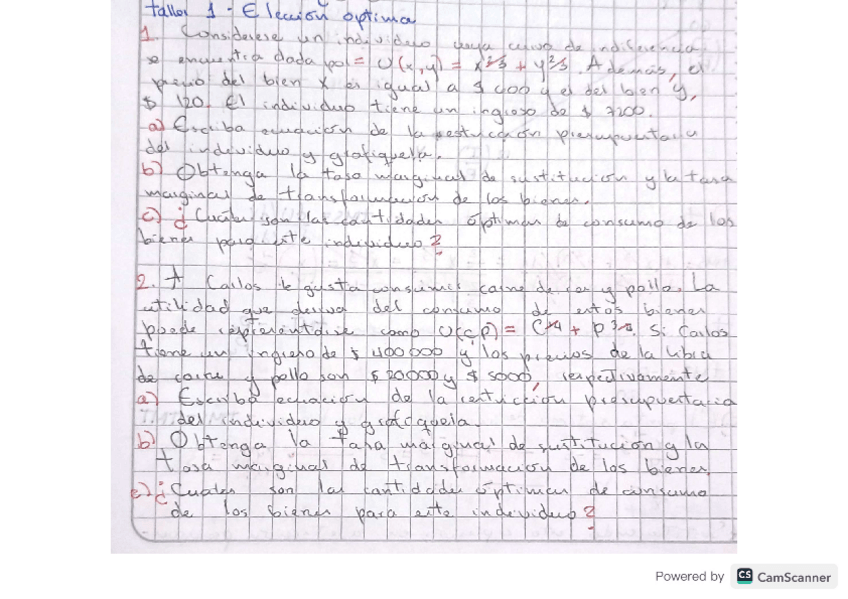 Taller 1 - Elección óptima
1. Considerese un individuo cuya curva de indiferencia
se encuentra dada por = U(x,y) = x²/³ + y²/³. Además, el
precio del bien x es igual a $ 400 y el del bien y,
$ 120. El individuo tiene un ingreso de $ 7200.
a) Escriba ecuación de la restricción presupuestaria
del individuo y grafiquela.
b) Obtenga la tasa marginal de sustitución y la tasa
marginal de transformación de los bienes.
c) ¿Cuáles son las cantidades óptimas de consumo de los
bienes para este individuo?
2. A Carlos le gusta consumir carne de res y pollo. La
utilidad que deriva del consumo de estos bienes
puede representarse como U(c,p) = + Si Carlos
tiene un ingreso de $ 400000 y los precios de la libra
de carne y pollo son $ 20000 y $ 5000, respectivamente
a) Escriba ecuación de la restricción presupuestaria
del individuo y grafiquela.
b) Obtenga la tasa marginal de sustitución y la
tasa marginal de transformación de los bienes
c) ¿Cuales son las cantidades óptimas de consumo
de los bienes para este individuo?
Powered by CS CamScanner